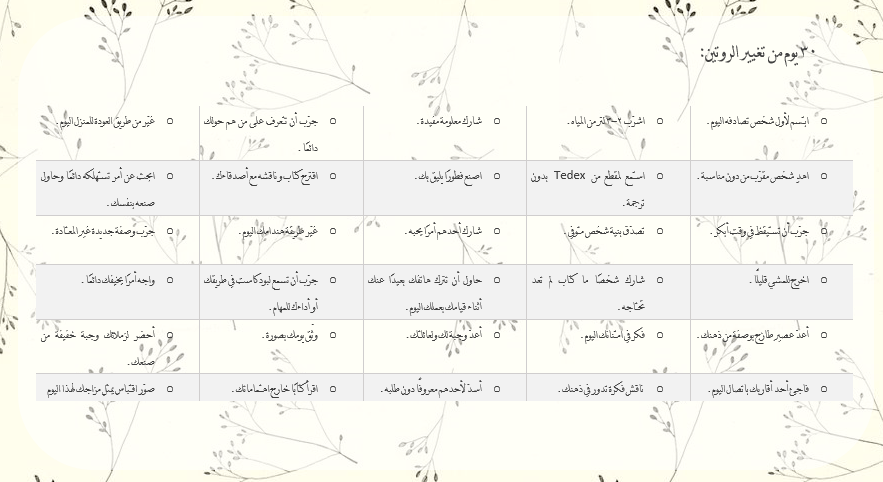 ٣٠ يوم من تغيير الروتين:
ابتسم لأول شخص تصادفه اليوم.
اشرب ٢-٣ لتر من المياه.
شارك معلومة مفيدة.
جرّب أن تتعرف على من هم حولك
دائمًا.
غيّر من طريق العودة للمنزل اليوم.
اهدِ شخص مقرّب من دون مناسبة.
استمع لمقطع من Tedex بدون
ترجمة.
اصنع فطورًا يليق بك.
اقترح كتاب وناقشه مع أصدقاءك.
ابحث عن أمر تستهلكه دائمًا وحاول
صنعه بنفسك.
جرّب أن تستيقظ في وقت أبكر.
تصدّق بنية شخص متوفي.
شارك أحدهم أمرًا يحبه.
غيّر طريقة هندامك اليوم.
جرّب وصفة جديدة غير المعتادة.
اخرج للمشي قليلًا.
شارك شخصًا ما كتاب لم تعد
تحتاجه.
حاول أن تترك هاتفك بعيدًا عنك
أثناء قيامك بعملك اليوم.
جرّب أن تسمع لبودكاست في طريقك
أو أداءك للمهام.
واجه أمرًا يخيفك دائمًا.
أعدّ عصير طازج بوصفة من ذهنك.
فكر في امتنانك اليوم.
أعدّ وجبة لك ولعائلتك.
وثّق يومك بصورة.
أحضر لزملائك وجبة خفيفة من
صنعك.
فاجئ أحد أقاربك باتصال اليوم.
ناقش فكرة تدور في ذهنك.
أسدِ لأحدهم معروفًا دون طلبه.
اقرأ كتابًا خارج اهتماماتك.
صوّر اقتباس يمثل مزاجك لهذا اليوم